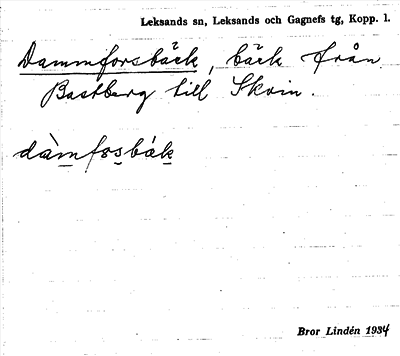 Leksands sn, Leksands och Gagnefs tg, Kopp. l.
Dammforsbäck, bäck från
Bastberg till Skvin.
dàmfosbäk
Bror Lindén 1934